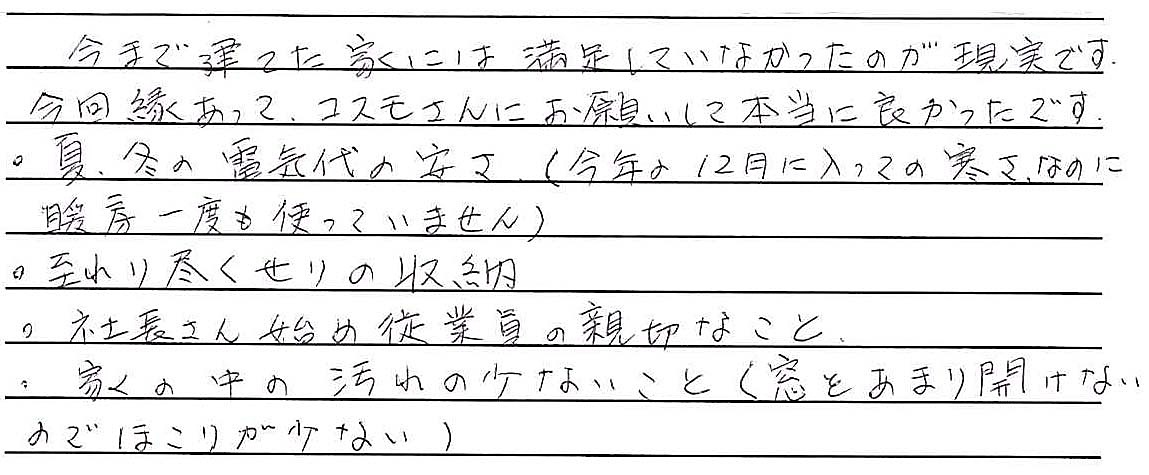 今まで建てた家には満足していなかったのが現実です.
今回縁あって、コスモさんにお願いして本当に良かったです.
。夏、冬の電気代の安さ.(今年の12月に入っての寒さ、なのに
暖房一度も使っていません)
。至れり尽くせりの収納
。社長さん始め従業員の親切なこと.
。家の中の汚れの少ないこと(窓をあまり開けない
のでほこりが少ない)